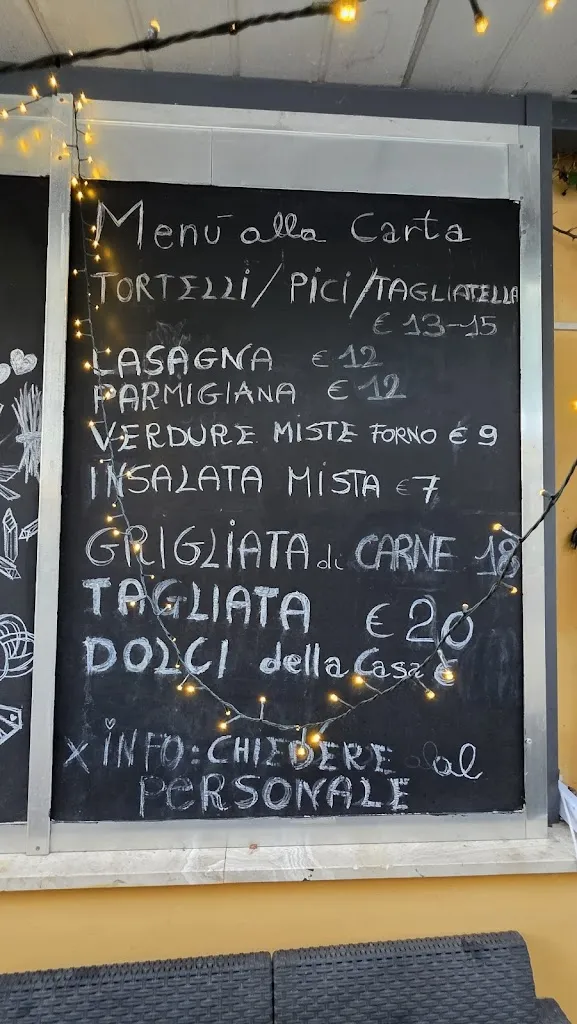 Menú alla Carta
TORTELLI/PICI/TAGLIATELLA
€ 13-15
LASAGNA € 12
PARMIGIANA € 12
VERDURE MISTE FORNO € 9
INSALATA MISTA €7
GRIGLIATA di CARNE 18
TAGLIATA € 20
DOLCI della Casa €
X INFO: CHIEDERE al
PERSONALE